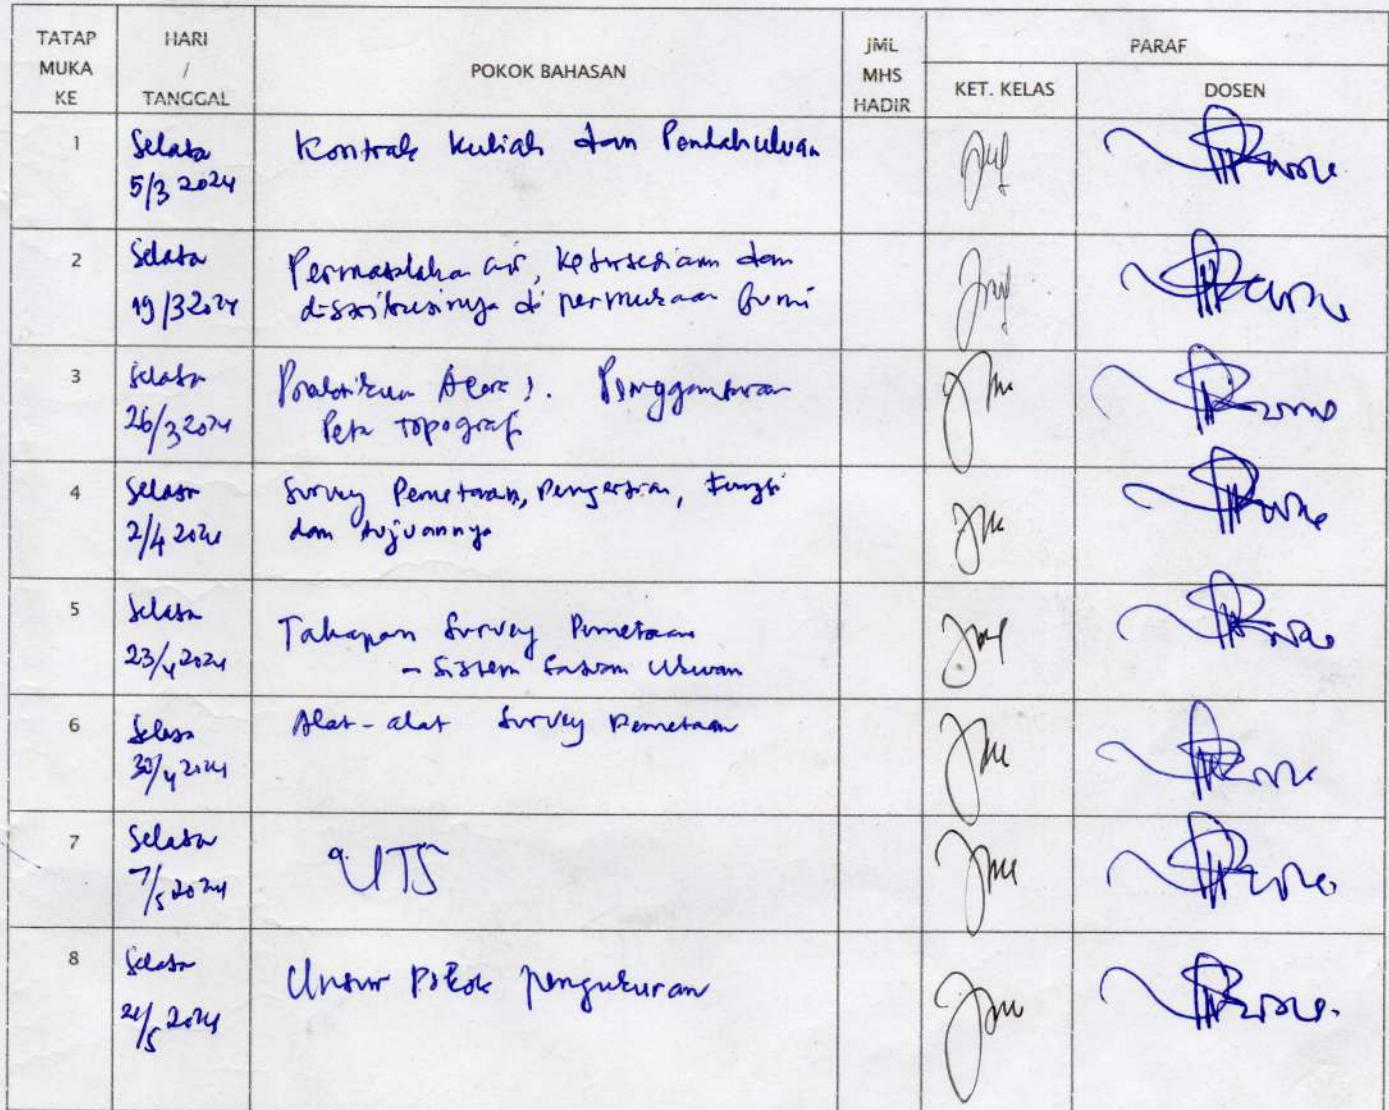 TATAP MUKA KE
HARI / TANGGAL
POKOK BAHASAN
JML MHS HADIR
PARAF
KET. KELAS
DOSEN
1
Selasa
5/3 2024
Kontrak kuliah dan Pendahuluan
2
Selasa
19/3 2024
Permasalahan air, ketersediaan dan
distribusinya di permukaan bumi
3
Selasa
26/3 2024
Praktikum Acara 1. Penggambaran
Peta Topografi
4
Selasa
2/4 2024
Survey Pemetaan, Pengertian, Fungsi
dan tujuannya
5
Selasa
23/4 2024
Tahapan Survey Pemetaan
- Sistem Satuan Ukuran
6
Selasa
30/4 2024
Alat-alat Survey Pemetaan
7
Selasa
7/5 2024
UTS
8
Selasa
21/5 2024
Unsur Pokok pengukuran